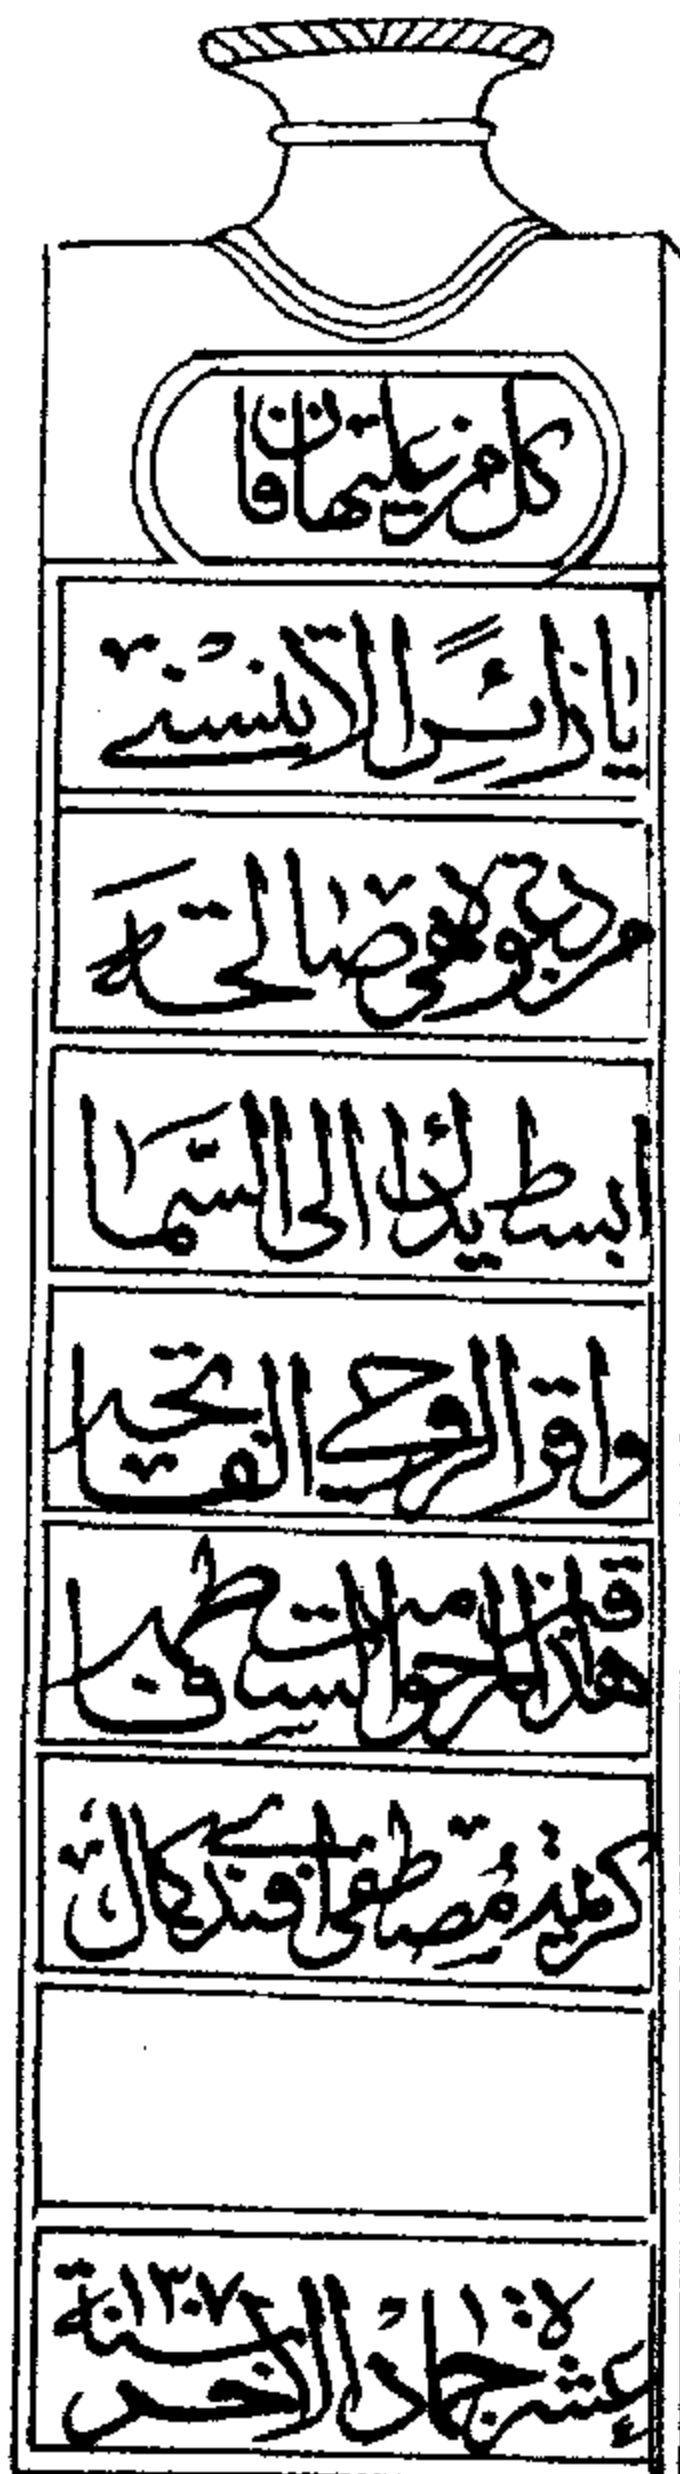 كل من عليها فان
يا زائرا لا تنسني
من دعوة لي صالحه
ابسط يديك الى السما
واقرا لروحي الفاتحه
هاذا قبر المرحومة الست فاطمه
كريمة مصطفى افندي كمال
عشرة جماد الاخر سنة ١٣٠٧